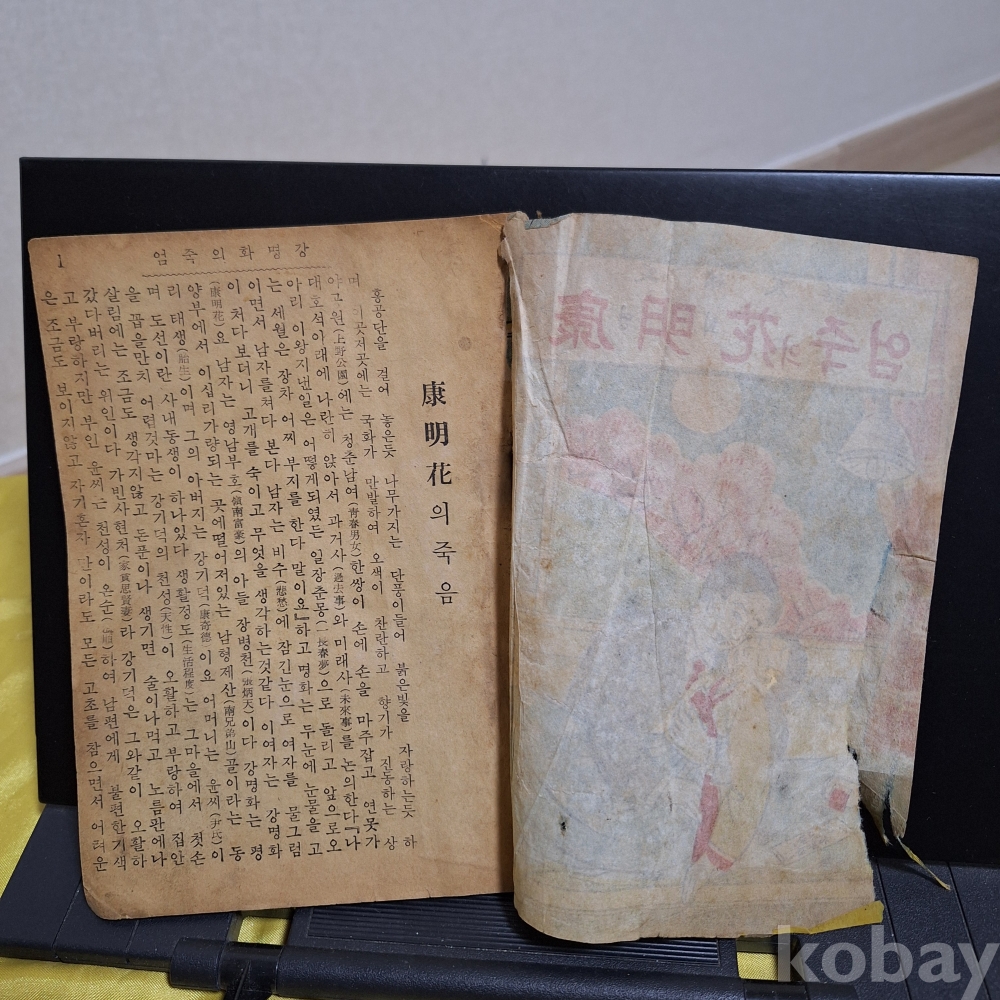 강명화의죽엄
1
康明花의죽음
홍공단을 걸어 놓은듯 나무가지는 단풍이들어 붉은빛을 자랑하는듯 하
며 이곳저곳에는 국화가 만발하여 오색이 찬란하고 향기가 진동하는 상
야공원(上野公園)에는 청춘남여(靑春男女)한쌍이 손에 손을 마주잡고 연못가
대호석이래에 나란히 앉아서 과거사(過去事)와 미래사(未來事)를 논의한다『나
아리 이왕지낸일은 어떻게되였든 일장춘몽(一長春夢)으로 돌리고 앞으로오
는 세월은 장차 어찌 부지를 한다 말이요』하고 명화는 두눈에 눈물을 고
이면서 남자를쳐다 본다 남자는 비수(悲愁)에 잠긴눈으로 여자를 물그럼
이 처다보더니 고개를 숙이고 무엇을 생각하는것같다 이여자는 강명화
(康明花)요 남자는 영남부호(嶺南富豪)의 아들 장병천(張炳天)이다 강명화는 평
양부에서 이십리가량되는 곳에떨어저있는 남형제산(南兄弟山)골이라는 동
리 태생(胎生)이며 그의 아버지는 강기덕(康奇德)이요 어머니는 윤씨(尹氏)이
며 도선이란 사내동생이 하나있다 생활정도(生活程度)는 그마을에서 첫손
을 꼽을만치 어렵것마는 강기덕의 천성(天性)이 오활하고 부랑하여 집안
살림에는 조금도 생각지않고 돈푼이나 생기면 술이나먹고 노름판에나
갔다버리는 위인이다 가빈사현처(家貧思賢妻)라 강기덕은 그와같이 오활하
고 부랑하지만 부인 윤씨는 천성이 온순(溫順)하여 남편에게 불편한기색
은 조금도 보이지않고 자기혼자 만이라도 모든 고초를 참으면서 어려운
康明花의죽엄
kobay